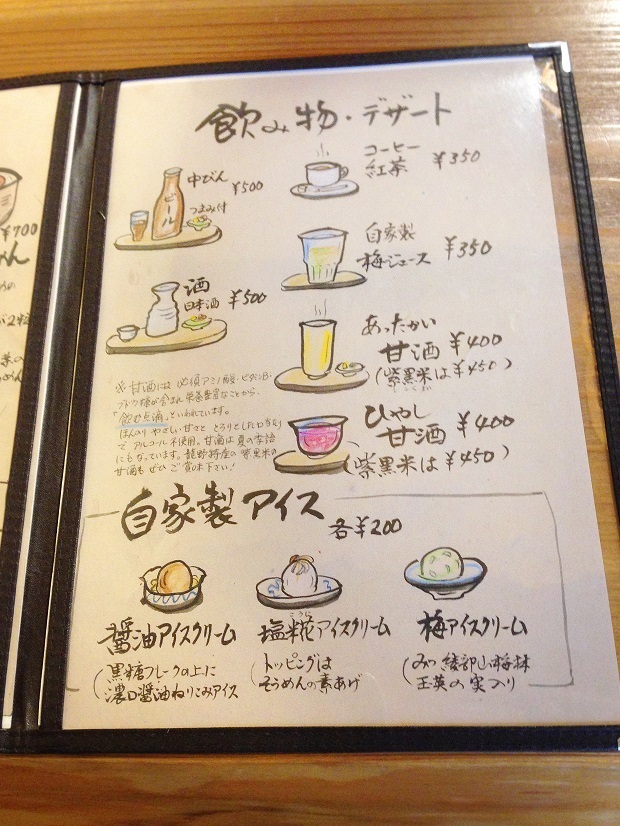 飲み物・デザート
中びん ¥500
つまみ付
ビール
コーヒー
紅茶 ¥350
酒
日本酒 ¥500
自家製
梅ジュース ¥350
あったかい
甘酒 ¥400
(紫黒米は¥450)
ひやし
甘酒 ¥400
(紫黒米は¥450)
※甘酒には必須アミノ酸・ビタミンB・
ブドウ糖が含まれ栄養豊富なことから、
"飲む点滴"といわれています。
ほんのりやさしい甘さと とろりとした口当たり
で アルコール不使用。甘酒は夏の季語
にもなっています。龍野特産の紫黒米の
甘酒も ぜひ ご賞味下さい!
自家製アイス 各¥200
醤油アイスクリーム
(黒糖フレークの上に
濃口醤油ねりこみアイス
こうじ
塩糀アイスクリーム
(トッピングは
そうめんの素あげ
梅アイスクリーム
(みつ綾部山梅林
玉英の実入り
¥700